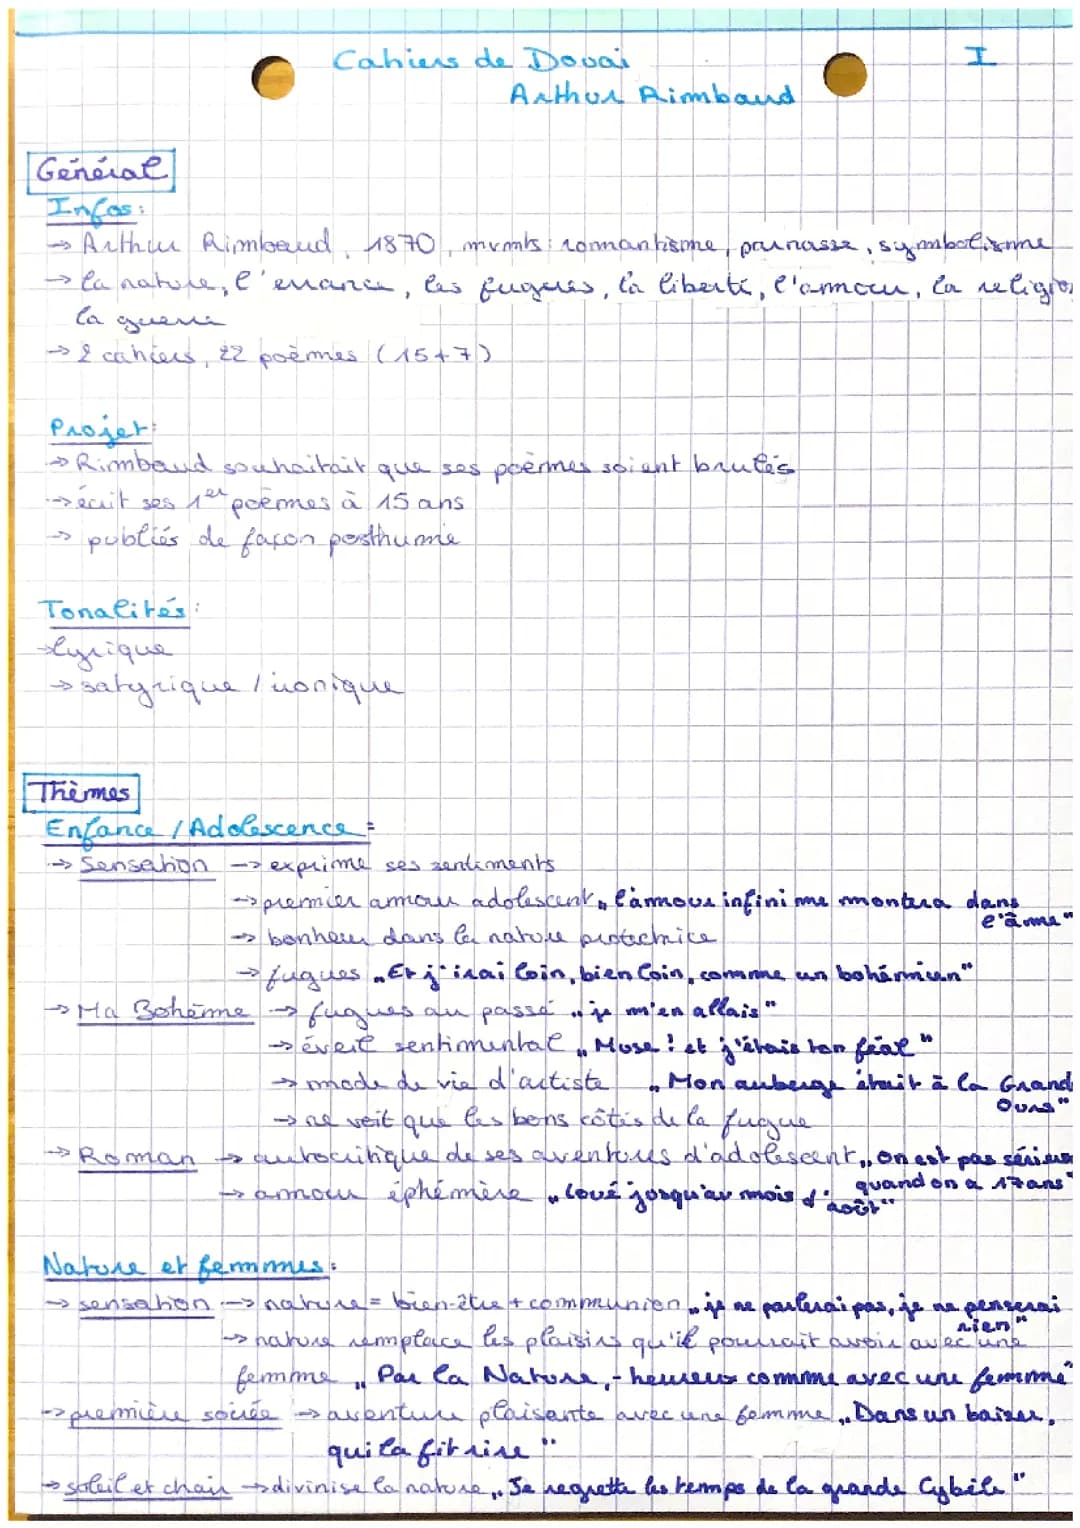 Cahiers de Douai
I
Arthur Rimbaud
Général
Infos:
→ Arthur Rimbaud, 1870, mvmts: romantisme, parnasse, symbolisme
→ la nature, l'errance, les fugues, la liberté, l'amour, la religion,
la guerre
→ 2 cahiers, 22 poèmes (15+7)
Projet:
→ Rimbaud souhaitait que ses poèmes soient brulés
→ écrit ses 1er poèmes à 15 ans
→ publiés de façon posthume
Tonalités:
→ lyrique
→ satyrique / ironique
Thèmes
Enfance / Adolescence:
→ Sensation → exprime ses sentiments
→ premier amour adolescent „l'amour infini me montera dans
l'âme"
→ bonheur dans la nature protectrice
→ fugues „Et j'irai loin, bien loin, comme un bohémien"
→ Ma Bohème → fugues au passé „je m'en allais"
→ éveil sentimental „Muse! et j'étais ton féal"
→ mode de vie d'artiste „Mon auberge était à la Grand
Ours"
→ ne voit que les bons côtés de la fugue
→ Roman → autocritique de ses aventures d'adolescent „on est pas sérieux
quand on a 17 ans"
→ amour éphémère „loué jusqu'au mois d'
août"
Nature et femmes:
→ sensation → nature = bien-être + communion „je ne parlerai pas, je ne penserai
rien"
→ nature remplace les plaisirs qu'il pourrait avoir avec une
femme „Par la Nature, - heureux comme avec une femme"
→ première soirée → aventure plaisante avec une femme „Dans un baiser,
qui la fit rire"
→ soleil et chair → divinise la nature „Je regrette les temps de la grande Cybèle"